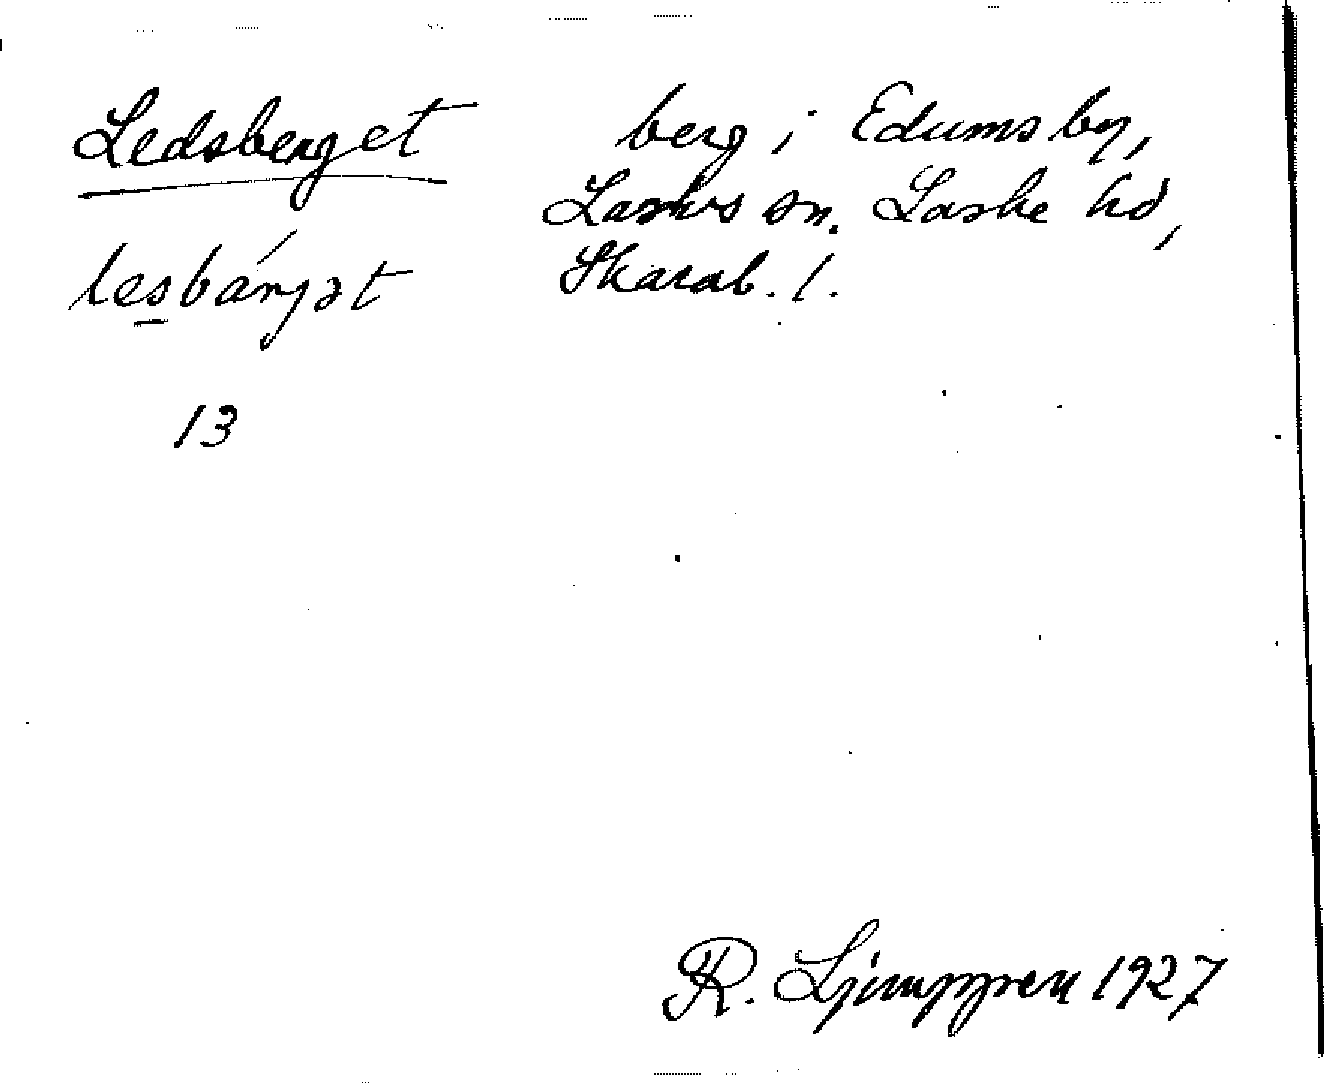 Ledsberget berg i Edums by,
Laskes sn. Laske hd,
lesbárgət Skarab. l.
13
R. Ljunggren 1927